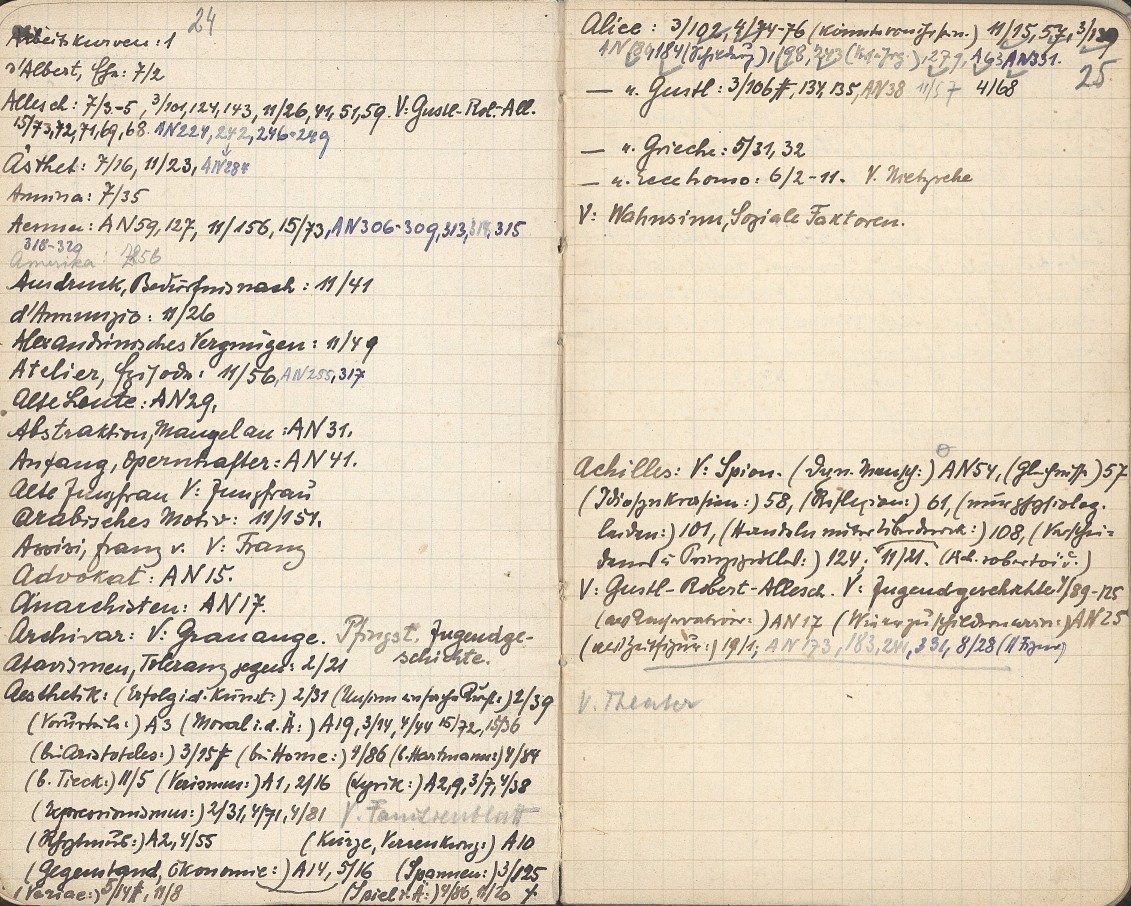 24
Arbeitskurven: 1
d'Albert, : 7/2
Allesch: 7/3-5, 3/101, 124, 143, 11/26, 41, 51, 59. V: Gustl-Rob.-All.
15/73, 72, 71, 69, 68. AN 224, 242, 246-249
Ästhet: 7/16, 11/23, AN 287
Annina: 7/35
Aenne: AN 59, 127, 11/156, 15/73, AN 306-309, 313, 315
318-320
Amerika:
Ausdruck, Bedürfnis nach: 11/41
d'Annunzio: 11/26
Alexandrinisches Vergnügen: 11/49
Atelier, Episode: 11/56, AN 255, 317
Alte Leute: AN 29.
Abstraktion, Mangel an: AN 31.
Anfang, opernhafter: AN 41.
Alte Jungfrau V: Jungfrau
Arabisches Motiv: 11/151.
Assisi, Franz v. V: Franz
Advokat: AN 15.
Anarchisten: AN 17.
Archivar: V: Granange. Pfingst. Jugendge-
schichte.
Atavismen, Toleranz gegen: 2/21
Aesthetik: (Erfolg i. d. Kunst:) 2/31 (Unsinn einfache :) 2/39
(Vorurteile:) A 3 (Moral i. d. Ä:) A 19, 3/14, 4/44 15/72, 15/36
(bei Aristoteles:) 3/15ff (bei Home:) 4/86 (b. Hartmann:) 4/84
(b. Tieck:) 11/5 (Verismus:) A 1, 2/16 (Lyrik:) A 2, 9, 3/7, 4/38
(Expressionismus:) 2/31, 4/71, 4/81 V. Familienblatt
(Rhythmus:) A 2, 4/55 (Kürze, Verrenkung:) A 10
(Gegenstand, Ökonomie:) A 14, 5/16 (Spannen:) 3/125
(Variae:) 5/14ff, 11/8 (Spiel i. Ä:) 4/86, 11/20
Alice: 3/102, 4/74-76 ( ) 11/15, 57,
AN 184 ( ), 198, 243 ( ), 279, A 63 AN 331.
25
— u. Gustl: 3/106ff, 134, 135, AN 38 11/57 4/68
— u. Grieche: 5/31, 32
— u. ecce homo: 6/2-11. V. Nietzsche
V: Wahnsinn, Soziale Faktoren.
Achilles: V: Spion. (Dyn. Mensch:) AN 54, ( ) 57
(Idiosynkrasien:) 58, (Reflexion:) 61, (nur physiolog.
leiden:) 101, (Handeln mit Überdruck:) 108, (Verschie-
dene u. :) 124, 11/21. ( )
V: Gustl-Robert-Allesch. V: Jugendgeschichte 4/89-125
(aus Konservativism:) AN 17 (Wie zu schildern wäre:) AN 25
(als Zeitfigur:) 19/1, AN 173, 183, 331, 8/28 (II Figur)
V. Theater